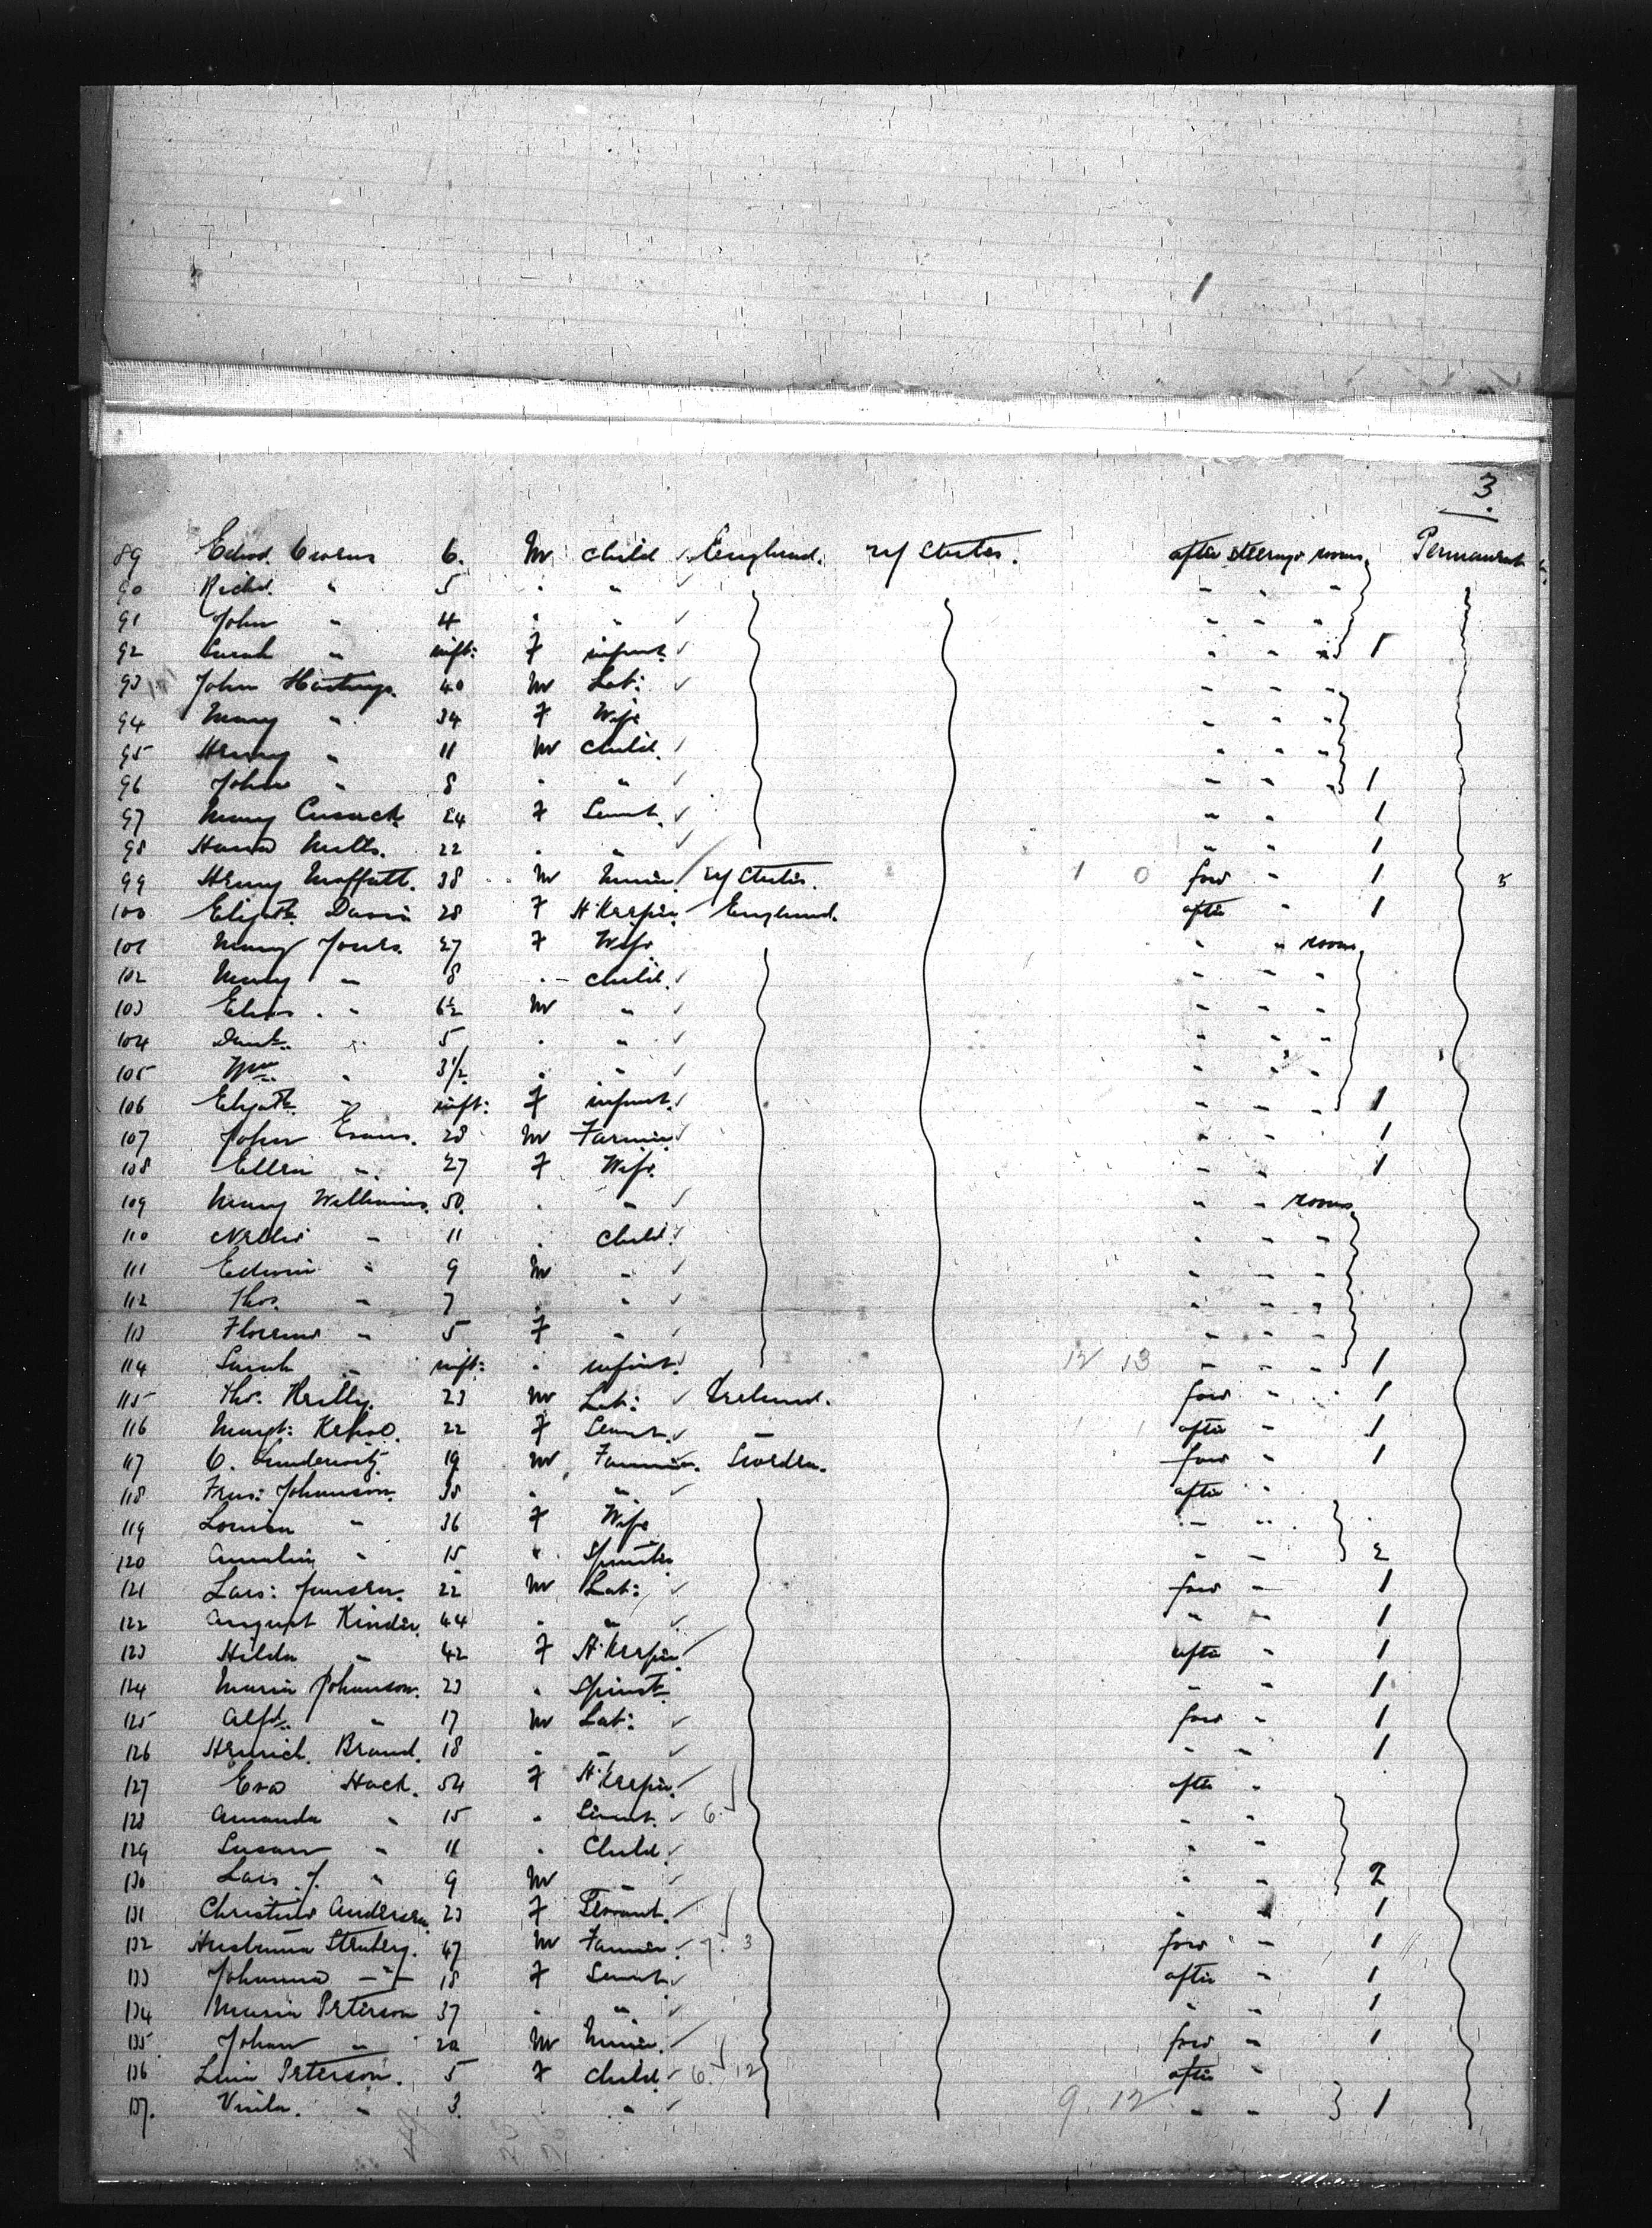 3.
89 Edwd. 6. M child England. U/States. after steerage rooms Permanent
90 Richd. " 5 " " " " "
91 John " 4 " " " " "
92 Sarah " inft: F infant " " " 1
93 John Hastings. 40 M Lab: " " "
94 Mary " 34 F Wife " " "
95 Henry " 11 M child. " " "
96 John " 8 " " " " " 1
97 Mary Cusack. 24 F Servt. " " 1
98 Mills. 22 " " " " 1
99 Henry Moffatt. 38 M Miner. U/States. 1 0 ford " 1 5
100 Elizth. Davis 28 F H.Keeper England. after " 1
101 Mary Jones. 27 F Wife " " rooms
102 Mary " 8 " child. " " "
103 " 6½ M " " " "
104 " 5 " " " " "
105 Wm. " 3½ " " " " "
106 Elizth. " inft: F infant. " " " 1
107 John Evans. 28 M Farmer " " 1
108 Ellen " 27 F Wife. " " 1
109 Mary Williams. 50. " " " " rooms.
110 Nellie " 11 " Child. " " "
111 Edwin " 9 M " " " "
112 Thos. " 7 " " " " "
113 Florence " 5 F " " " "
114 Sarah " inft: " infant. 12 13 " " " 1
115 Thos. Kelly. 23 M Lab: Ireland. ford " 1
116 Margt: Kehoe. 22 F Servt. " after " 1
117 C. 19 M Farmer. Sweden. ford " 1
118 Frns: Johanson. 38 " " after "
119 Louisa " 36 F Wife " "
120 Amalia " 15 " Spinster " " 2
121 Lars: Jansen. 22 M Lab: ford " 1
122 August Kinder. 44 " " " " 1
123 Hilda " 42 F H.Keeper after " 1
124 Maria Johanson. 23 " Spinstr. " " 1
125 Alfd. " 17 M Lab: ford " 1
126 Heinrich. Brand. 18 " " " " 1
127 Eva Hack. 54 F H.Keeper after "
128 Amanda " 15 " Servt. 6. " "
129 Susan " 11 " Child " "
130 Lars J. " 9 M " " " 2
131 Andersen 23 F Servant. " " 1
132 47 M Farmer. 7. 3 ford " 1
133 Johanna " 18 F Servt. after " 1
134 Maria Peterson 37 " " " " 1
135. Johan " 20 M Miner. ford " 1
136 Peterson. 5 F child. 6. 12 after "
137. " 3. " " 9. 12 " " 1